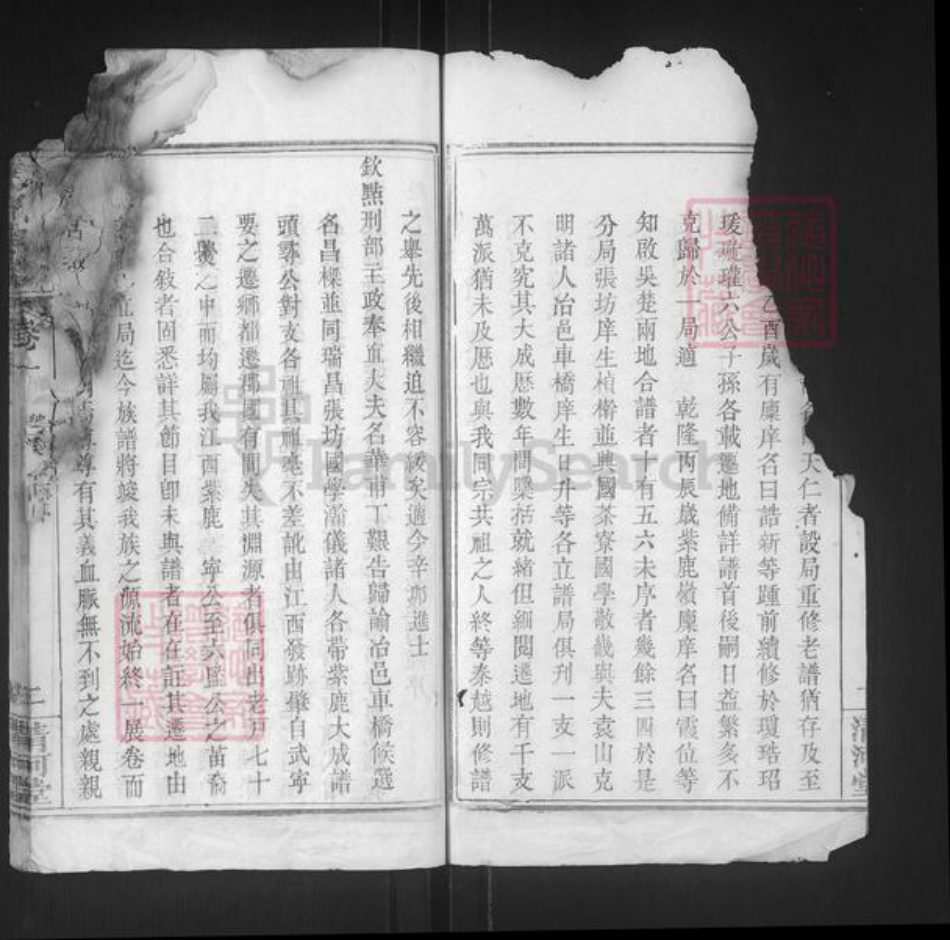 天仁者設局重修老譜猶存及至
乙酉歲有廩庠名曰誥新等踵前續修於瓊琣玿
瑗 瓘六公子孫各載遷地俻詳譜首後嗣日益繁多不
克歸於一局適 乾隆丙辰歲紫鹿嶺廩庠名曰霞位等
知啟吳楚兩地合譜者十有五六未序者幾餘三四於是
分局張坊庠生楨榦並興國茶寮國學散畿與夫袁山克
明諸人冶邑車橋庠生日升等各立譜局俱刋一支一派
不克究其大成歷數年間檃括就緒但細閱遷地有千支
萬派猶未及歷也與我同宗共祖之人終等秦越則修譜
之舉先後相繼迫不容緩矣適今辛卯進士
欽㸃刑部主政奉直大夫名華甫丁艱告歸諭冶邑車橋候選
名昌樑並同瑞昌張坊國學瀚儀諸人各帶紫鹿大成譜
頭 公對支各祖其源 不差訛由江西發跡肇自武寧
要之遷鄉都遷郡國有間失其淵源者俱同出老戸七十
二 之中而均屬我江西紫鹿 寧公至 監公之苗裔
也合敍者固悉詳其節目卽未與譜者在在註其遷地由
立局迄今族譜將竣我族之源流始終一展卷而
尊有其義血脈無不到之處親親
卷一
二
清河堂
清河堂
FamilySearch